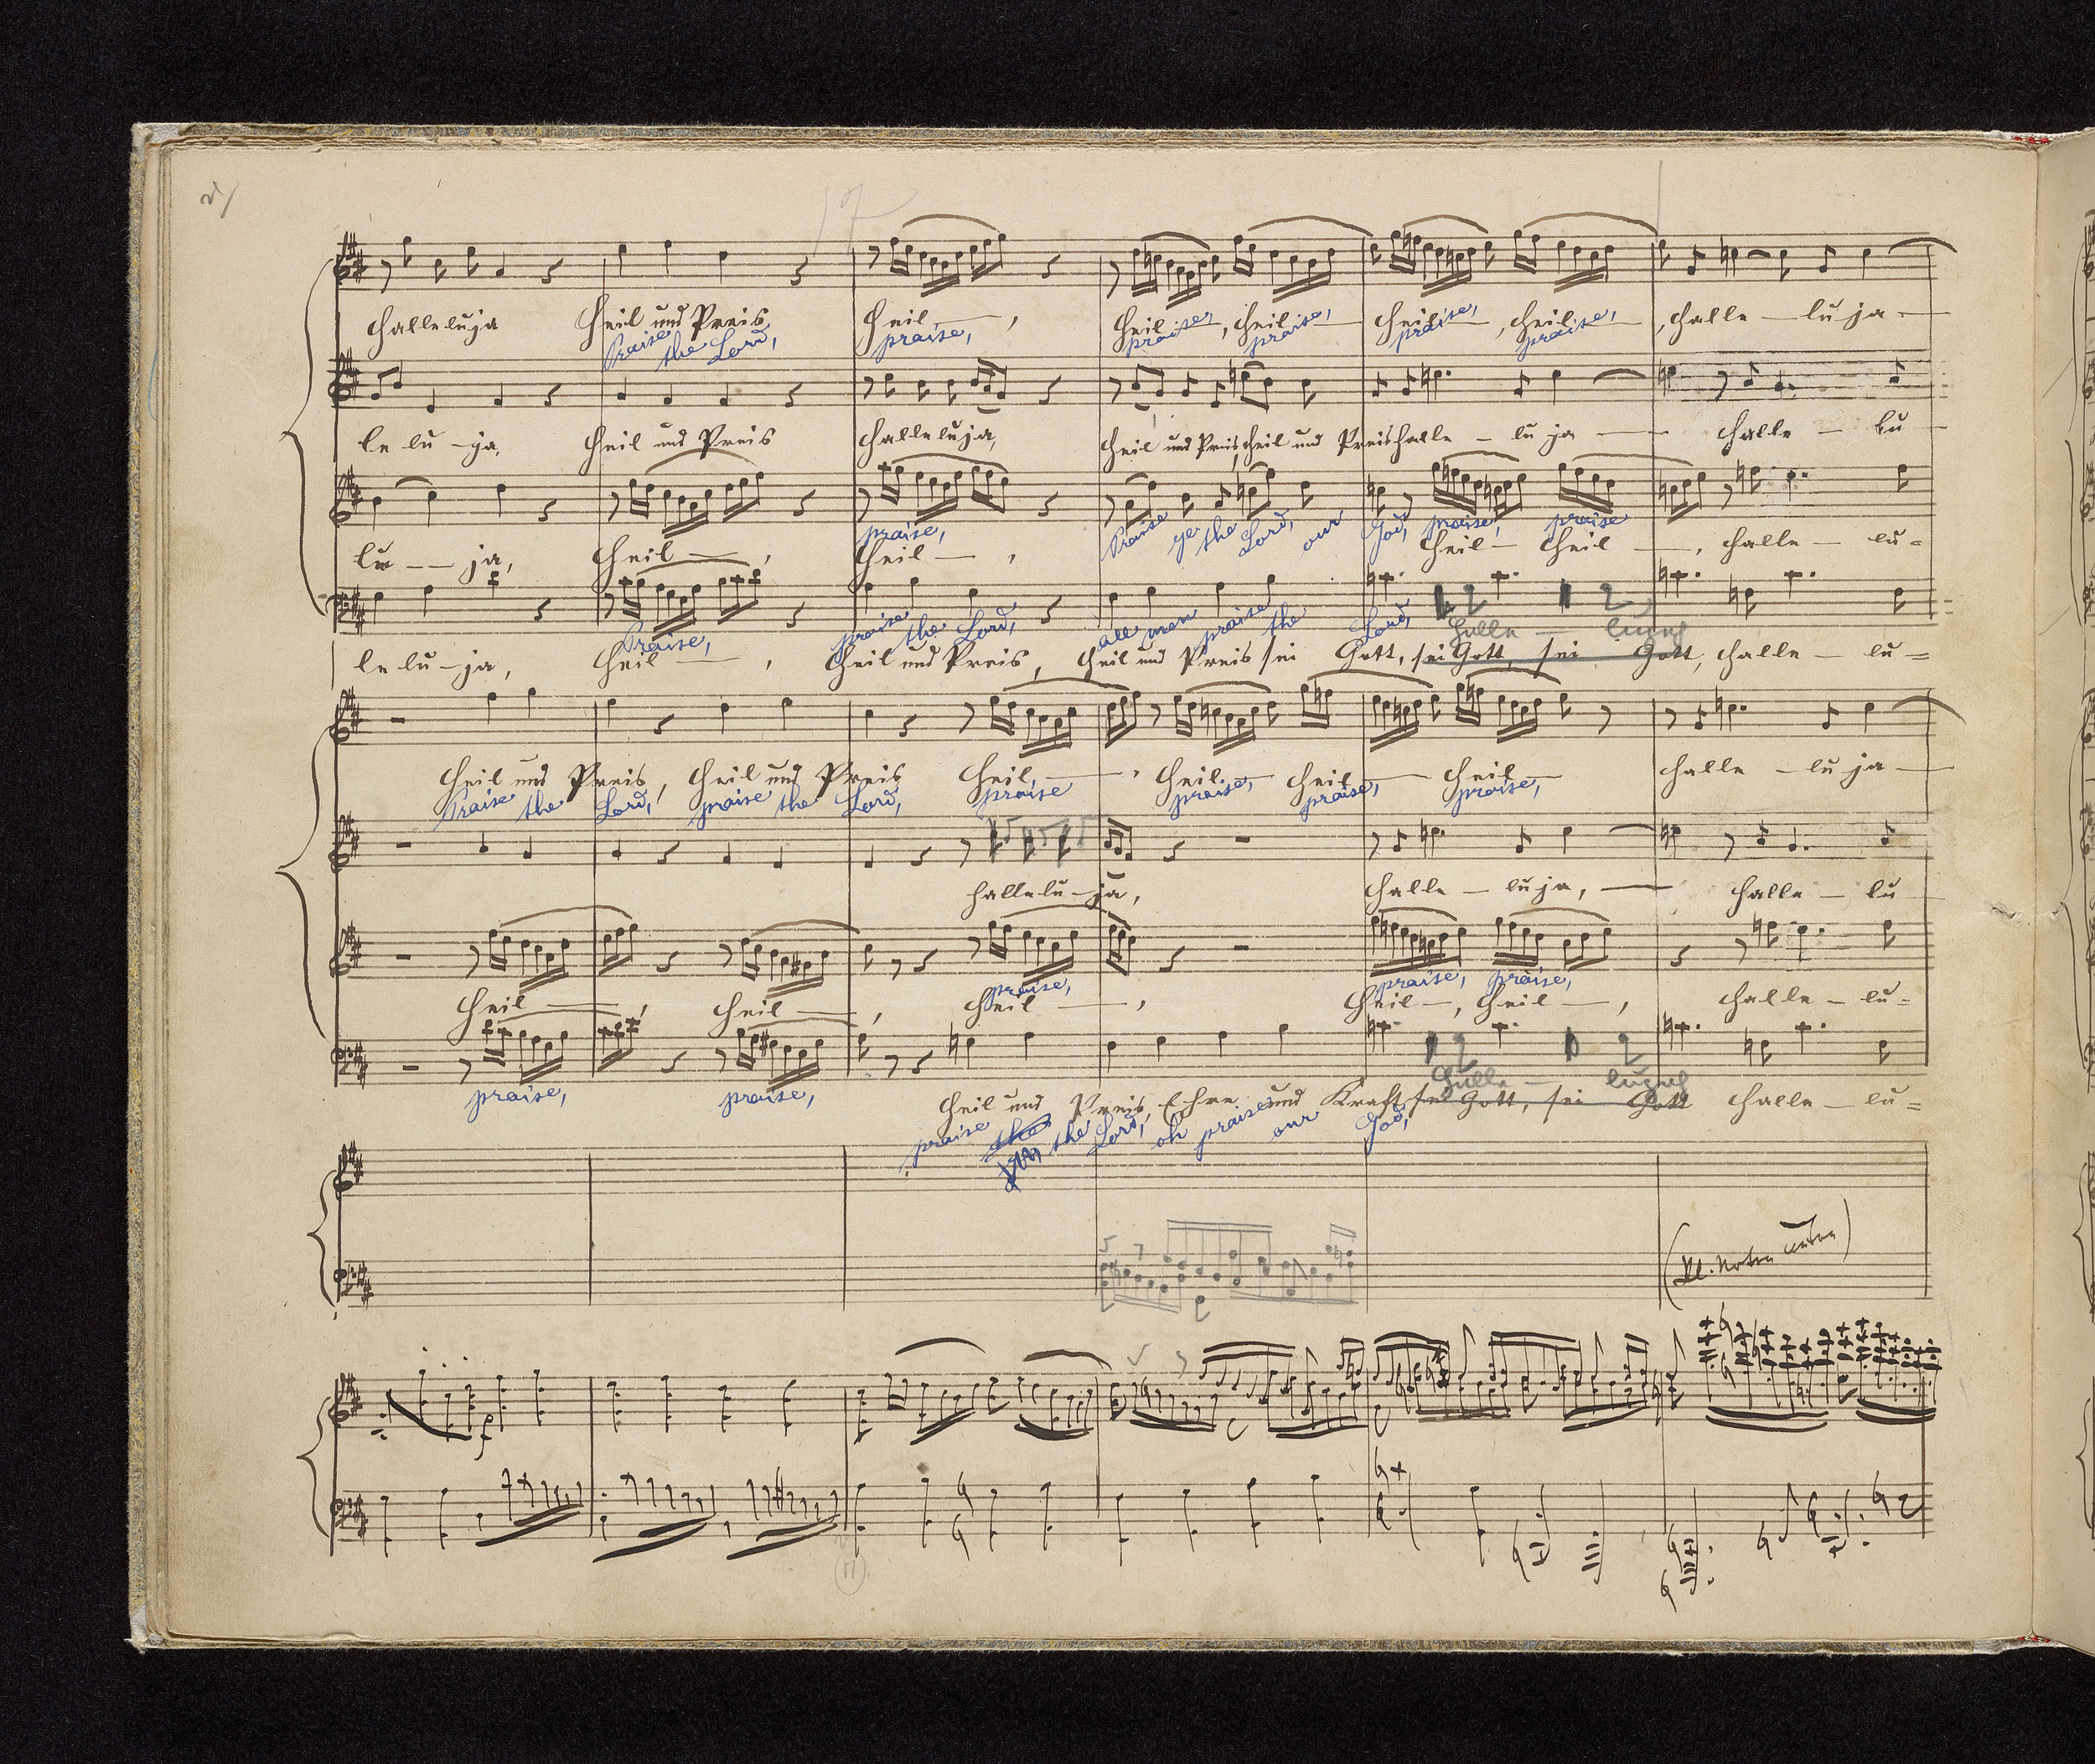 Halleluja Heil und Preis Heil —, Heil —, Heil — Heil —, Heil —, Halle — lu ja —
Praise the Lord, praise, praise, praise, praise, praise,
le lu — ja, Heil und Preis Halleluja, Heil und Preis, Heil und Preis Halle — lu ja — Halle — lu
praise, Praise ye the Lord, our God, praise, praise
lu — — ja, Heil —, Heil —, Heil — Heil —, Halle — lu =
Praise, praise the Lord, all men praise the Lord, Halle — lujah
le lu — ja, Heil —, Heil und Preis, Heil und Preis sei Gott, sei Gott, sei Gott, Halle — lu =
Heil und Preis, Heil und Preis Heil, —, Heil — Heil — Heil — Halle — lu ja —
Praise the Lord, praise the Lord, praise praise, praise, praise,
hallelu — ja, Halle — luja, — Halle — lu
praise, praise, praise,
Heil —, Heil —, Heil —, Heil —, Heil —, Halle — lu =
praise, praise, Halle — lujah
Heil und Preis, Ehre und Kraft sei Gott, sei Gott Halle — lu =
praise the the Lord, oh praise our God,
(Kl. Noten unten)
f